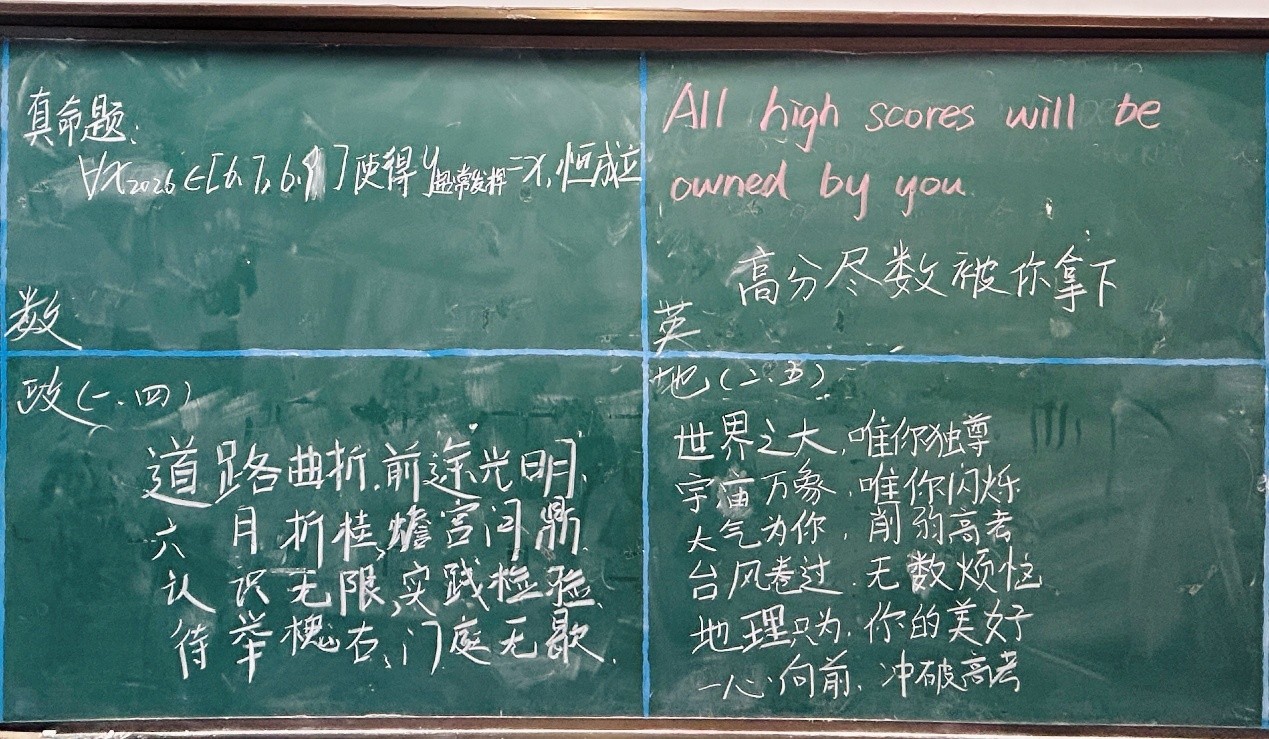 真命题:
∀x₂₀₂₆∈[6.7,6.9]使得y超常发挥=x,恒成立
数
All high scores will be
owned by you
高分尽数被你拿下
英
政(一.四)
道路曲折.前途光明.
六月折桂,蟾宫问鼎.
认识无限,实践检验.
待举槐右,门庭无歇.
地(二.五)
世界之大,唯你独尊
宇宙万象,唯你闪烁
大气为你,削弱高考
台风卷过.无数烦忧
地理只为.你的美好
一心向前.冲破高考